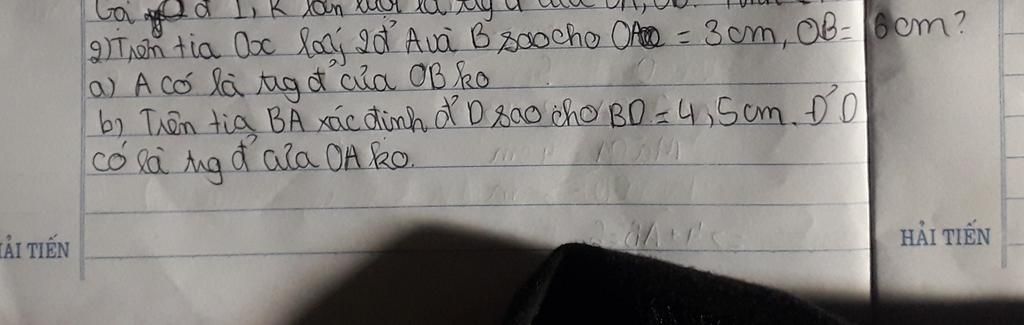 2) Trên tia Ox lấy 2 đ' A và B sao cho OA = 3cm, OB = 6cm?
a) A có là tng đ' của OB ko
b) Trên tia BA xác định đ' D sao cho BD = 4,5cm. Đ' D
có là tng đ' của OA ko.
ẢI TIẾN
HẢI TIẾN